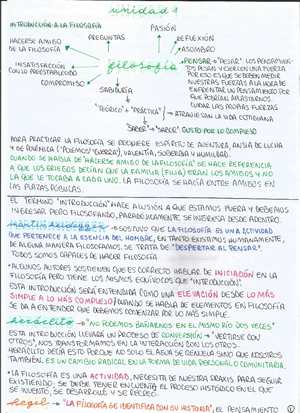 unidad 1
INTRODUCCIÓN A LA FILOSOFÍA
PASIÓN
PREGUNTAS
REFLEXIÓN
HACERSE AMIGO
DE LA FILOSOFÍA
ASOMBRO
filosofía
PENSAR → "PESAR". LOS PENSAMIENTOS
INSATISFACCIÓN
CON LO PREESTABLECIDO
COMPROMISO
SABIDURÍA
"TEÓRICO" + "PRÁCTICA" / → ATRAVIESAN LA VIDA COTIDIANA
"SABER" → "SABOR". GUSTO POR LO COMPLEJO
PARA PRACTICAR LA FILOSOFÍA SE REQUIERE ESPÍRITU DE AVENTURA, ANSIA DE LUCHA
Y DE POLÉMICA ("POLEMOS" GUERRA), VALENTÍA, SOBERBIA Y HUMILDAD.
CUANDO SE HABLA DE "HACERSE AMIGO DE LA FILOSOFÍA" SE HACE REFERENCIA
A QUE LOS GRIEGOS DECÍAN QUE LA FAMILIA (FILIA) ERAN LOS AMIGOS Y NO
LA QUE LE TOCABA A CADA UNO. LA FILOSOFÍA SE HACÍA ENTRE AMIGOS EN
LAS PLAZAS PÚBLICAS.
EL TÉRMINO "INTRODUCCIÓN" HACE ALUSIÓN A QUE ESTAMOS FUERA Y DEBEMOS
INGRESAR PERO FILOSOFANDO, PARADÓJICAMENTE SE INGRESA DESDE ADENTRO.
martin heidegger → SOSTUVO QUE LA FILOSOFÍA ES UNA ACTIVIDAD
QUE PERTENECE A LA ESENCIA DEL HOMBRE, EN TANTO EXISTAMOS HUMANAMENTE,
DE ALGUNA MANERA FILOSOFAMOS. SE TRATA DE "DESPERTAR AL PENSAR".
TODOS SOMOS CAPACES DE HACER FILOSOFÍA
• ALGUNOS AUTORES SOSTIENEN QUE ES CORRECTO HABLAR DE INICIACIÓN EN LA
FILOSOFÍA PERO TIENE LOS MISMOS EQUÍVOCOS QUE "INTRODUCCIÓN".
ESTA INTRODUCCIÓN SERÁ ENTENDIDA COMO UNA ELEVACIÓN DESDE LO MÁS
SIMPLE A LO MÁS COMPLEJO, CUANDO SE HABLA DE ELEMENTOS EN FILOSOFÍA
SE DA A ENTENDER QUE DEBEMOS COMENZAR POR LO MÁS SIMPLE.
heráclito → "NO PODEMOS BAÑARNOS EN EL MISMO RÍO DOS VECES"
ESTA INTRODUCCIÓN LLEVARÁ UN PROCESO DE CONVERSIÓN → "VERTIRSE CON
OTROS", NOS TRANSFORMAMOS EN LA INTERACCIÓN CON LOS OTROS.
HERÁCLITO DECÍA ESTO PORQUE NO SOLO EL AGUA SE RENUEVA SINO QUE NOSOTROS
TAMBIÉN. ES UN CAMBIO RADICAL EN LA FORMA DE VIDA PERSONAL O COMUNITARIA.
• LA FILOSOFÍA ES UNA ACTIVIDAD, NECESITA DE NUESTRA PRAXIS PARA SEGUIR
EXISTIENDO. SE DEBE TENER EN CUENTA EL PROCESO HISTÓRICO EN EL QUE
SE INVENTÓ, SE DESARROLLÓ Y SE RECREÓ.
hegel → "LA FILOSOFÍA SE IDENTIFICA CON SU HISTORIA", EL PENSAMIENTO